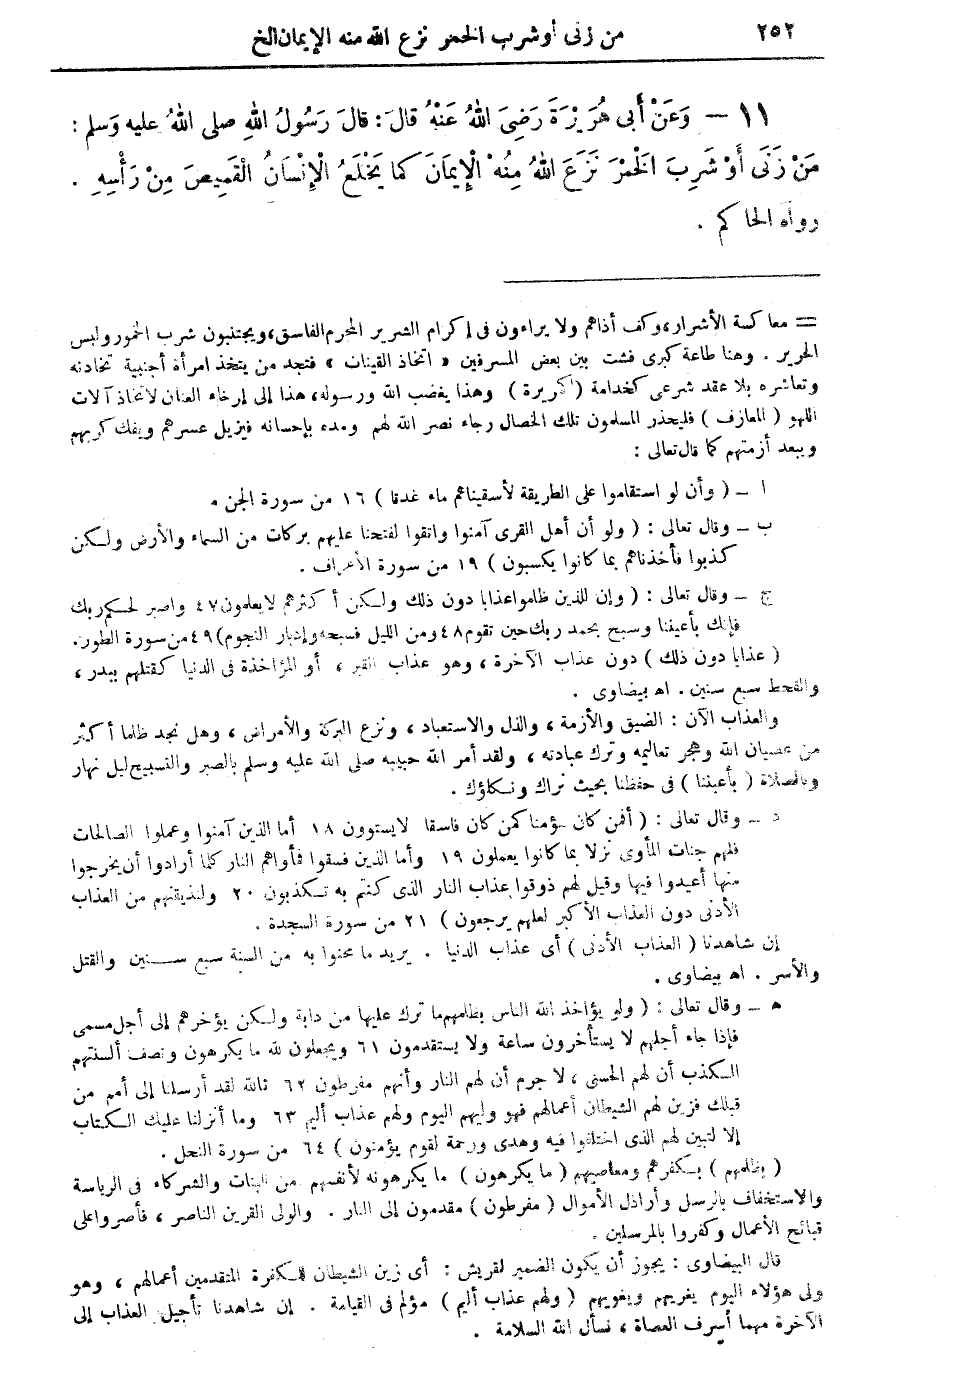 ٢٥٢
من زنى أو شرب الخمر نزع الله منه الإيمان الخ
١١ — وَعَنْ أَبِى هُرَيْرَةَ رَضِىَ اللهُ عَنْهُ قَالَ: قَالَ رَسُولُ اللهِ صلى اللهُ عليه وَسلم :
مَنْ زَنَى أَوْ شَرِبَ الْخَمْرَ نَزَعَ اللهُ مِنْهُ الْإِيمَانَ كما يَخْلَعُ الْإِنْسَانُ الْقَمِيصَ مِنْ رَأْسِهِ .
رواه الحاكم .
= معاكسة الأشرار، وكف أذاهم ولا يراءون فى إكرام الشرير المجرم الفاسق، ويجتنبون شرب الخمور ولبس
الحرير . وهنا طاعة كبرى فشت بين بعض المسرفين « اتخاذ القينات » فتجد من يتخذ امرأة أجنبية تخادنه
وتعاشره بلا عقد شرعى كخدامة (أكريرة) وهذا يغضب الله ورسوله، هذا إلى إرخاء العنان لاتخاذ آلات
اللهو ( المعازف ) فليحذر المسلمون تلك الخصال رجاء نصر الله لهم ومده بإحسانه فيزيل عسرهم ويفك كربهم
ويبعد أزمتهم كما قال تعالى :
ا — ( وأن لو استقاموا على الطريقة لأسقيناهم ماء غدقا ) ١٦ من سورة الجن .
ب — وقال تعالى : ( ولو أن أهل القرى آمنوا واتقوا لفتحنا عليهم بركات من السماء والأرض ولكن
كذبوا فأخذناهم بما كانوا يكسبون ) ١٩ من سورة الأعراف .
ج — وقال تعالى : ( وإن للذين ظلموا عذابا دون ذلك ولكن أكثرهم لايعلمون ٤٧ واصبر لحكم ربك
فإنك بأعيننا وسبح بحمد ربك حين تقوم ٤٨ ومن الليل فسبحه وإدبار النجوم) ٤٩ من سورة الطور.
( عذابا دون ذلك ) دون عذاب الآخرة ، وهو عذاب القبر ، أو المؤاخذة فى الدنيا كقتلهم ببدر ،
والقحط سبع سنين . اه بيضاوى .
والعذاب الآن : الضيق والأزمة ، والذل والاستعباد ، ونزع البركة والأمراض ، وهل نجد ظلما أكثر
من عصيان الله وهجر تعاليمه وترك عبادته ، ولقد أمر الله حبيبه صلى الله عليه وسلم بالصبر والتسبيح ليل نهار
وبالصلاة ( بأعيننا ) فى حفظنا بحيث نراك ونكلؤك .
د — وقال تعالى : ( أفمن كان مؤمنا كمن كان فاسقا لايستوون ١٨ أما الذين آمنوا وعملوا الصالحات
فلهم جنات المأوى نزلا بما كانوا يعملون ١٩ وأما الذين فسقوا فمأواهم النار كلما أرادوا أن يخرجوا
منها أعيدوا فيها وقيل لهم ذوقوا عذاب النار الذى كنتم به تكذبون ٢٠ ولنذيقنهم من العذاب
الأدنى دون العذاب الأكبر لعلهم يرجعون ) ٢١ من سورة السجدة .
إن شاهدنا ( العذاب الأدنى ) أى عذاب الدنيا . يريد ما محنوا به من السنة سبع سنين والقتل
والأسر . اه بيضاوى .
ه — وقال تعالى : ( ولو يؤاخذ الله الناس بظلمهم ما ترك عليها من دابة ولكن يؤخرهم إلى أجل مسمى
فإذا جاء أجلهم لا يستأخرون ساعة ولا يستقدمون ٦١ ويجعلون لله ما يكرهون وتصف ألسنتهم
الكذب أن لهم الحسنى ، لا جرم أن لهم النار وأنهم مفرطون ٦٢ تالله لقد أرسلنا إلى أمم من
قبلك فزين لهم الشيطان أعمالهم فهو وليهم اليوم ولهم عذاب أليم ٦٣ وما أنزلنا عليك الكتاب
إلا لتبين لهم الذى اختلفوا فيه وهدى ورحمة لقوم يؤمنون ) ٦٤ من سورة النحل .
( بظلمهم ) بكفرهم ومعاصيهم ( ما يكرهون ) ما يكرهونه لأنفسهم من البنات والشركاء فى الرياسة
والاستخفاف بالرسل وأراذل الأموال ( مفرطون ) مقدمون إلى النار . والولى القرين الناصر ، فأصروا على
قبائح الأعمال وكفروا بالمرسلين .
قال البيضاوى : يجوز أن يكون الضمير لقريش : أى زين الشيطان للكفرة المتقدمين أعمالهم ، وهو
ولى هؤلاء اليوم يغريهم ويغويهم ( ولهم عذاب أليم ) مؤلم فى القيامة . إن شاهدنا تأجيل العذاب إلى
الآخرة مهما أسرف العصاة ، نسأل الله السلامة .